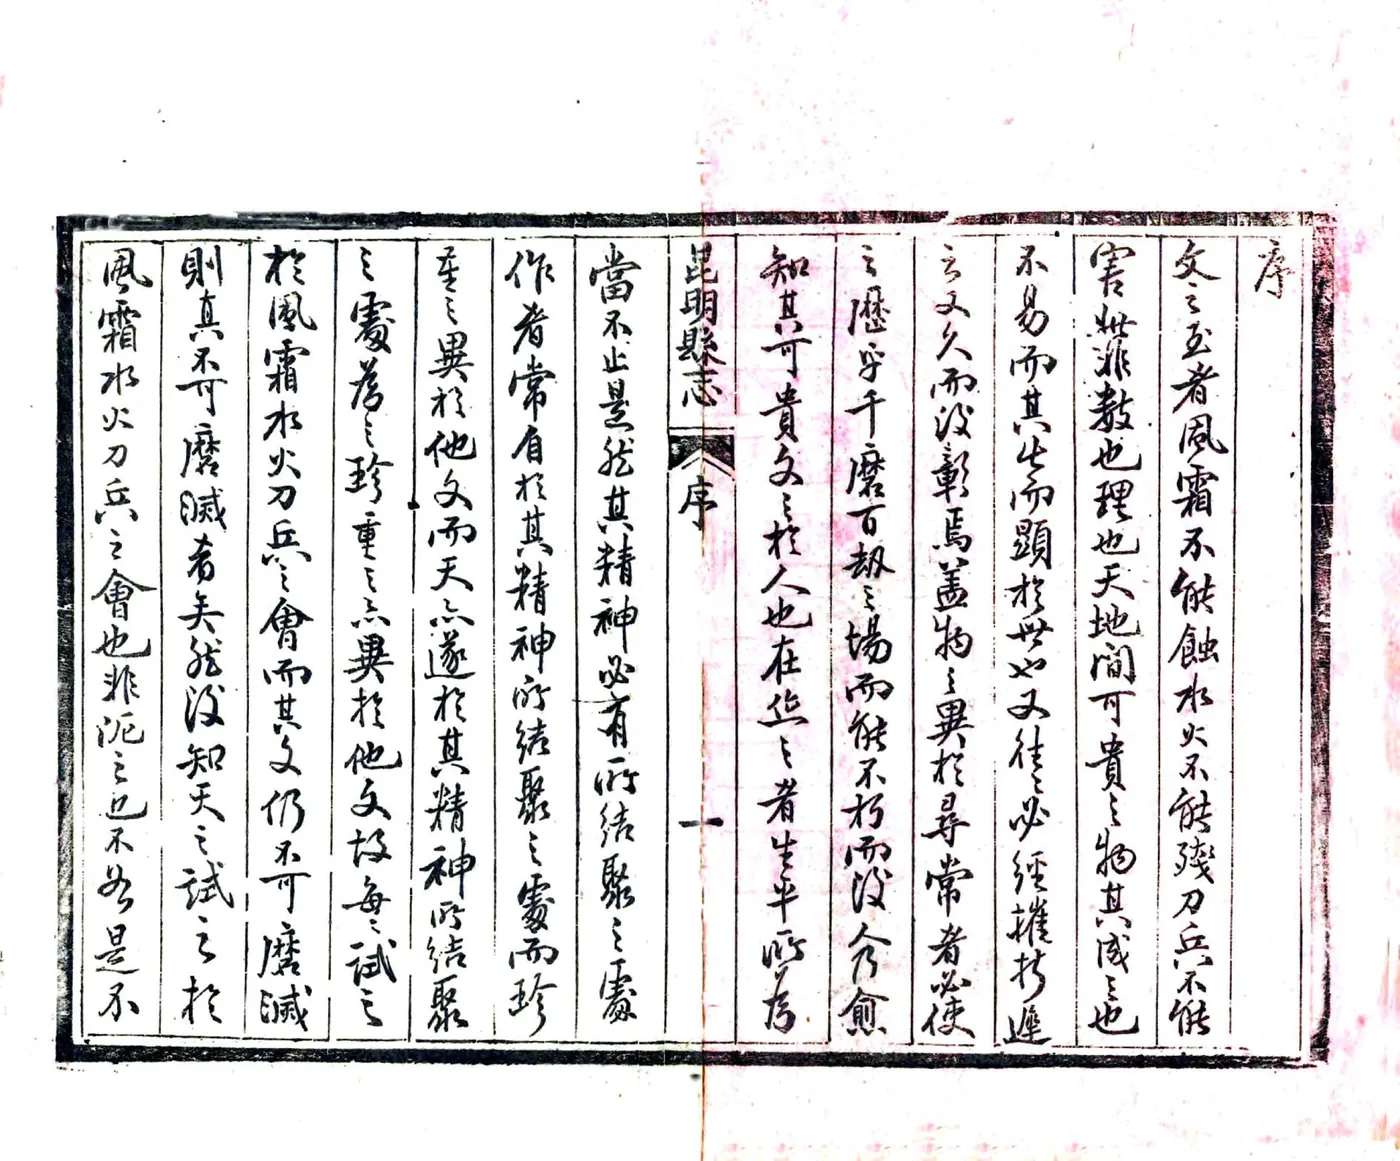 序
文之至者風霜不能蝕水火不能殘刀兵不能
害此非數也理也天地間可貴之物其成之也
不易而其出而顯於世也又往往必經摧折遲
之又久而後彰焉蓋物之異於尋常者必使
之歷乎千磨百劫之場而能不朽而後人乃愈
知其可貴文之於人也在作之者生平所為
昆明縣志
序
一
當不止是然其精神必有所結聚之處
作者常自於其精神所結聚之處而珍
重之異於他文而天亦遂於其精神所結聚
之處為之珍重之亦異於他文故每每試之
於風霜水火刀兵之會而其文仍不可磨滅
則真不可磨滅者矣然後知天之試之於
風霜水火刀兵之會也非泥之也不如是不